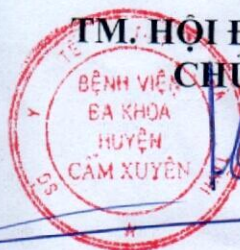 TM. HỘI Đ
CHỦ
SỞ Y TẾ
BỆNH VIỆN
ĐA KHOA
HUYỆN
CẨM XUYÊN